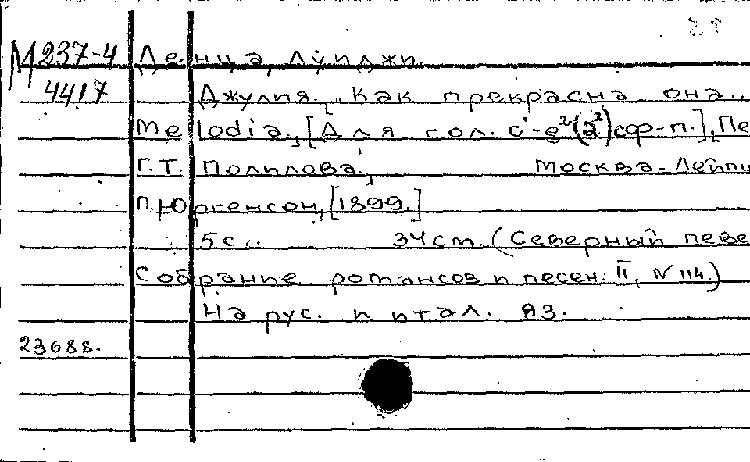 М 237-4 Денца, Луиджи.
4417 Джулия. [Как прекрасна она..
Melodia., [Для гол. c'-e²(a²) с ф-п.], Пе
Г.Т. Полилова, Москва-Лейпц
П. Юргенсон, [1899.]
5с.. 34cm. (Северный певе
Собрание романсов и песен. II, N 114.)
На рус. и итал. яз.
23688.